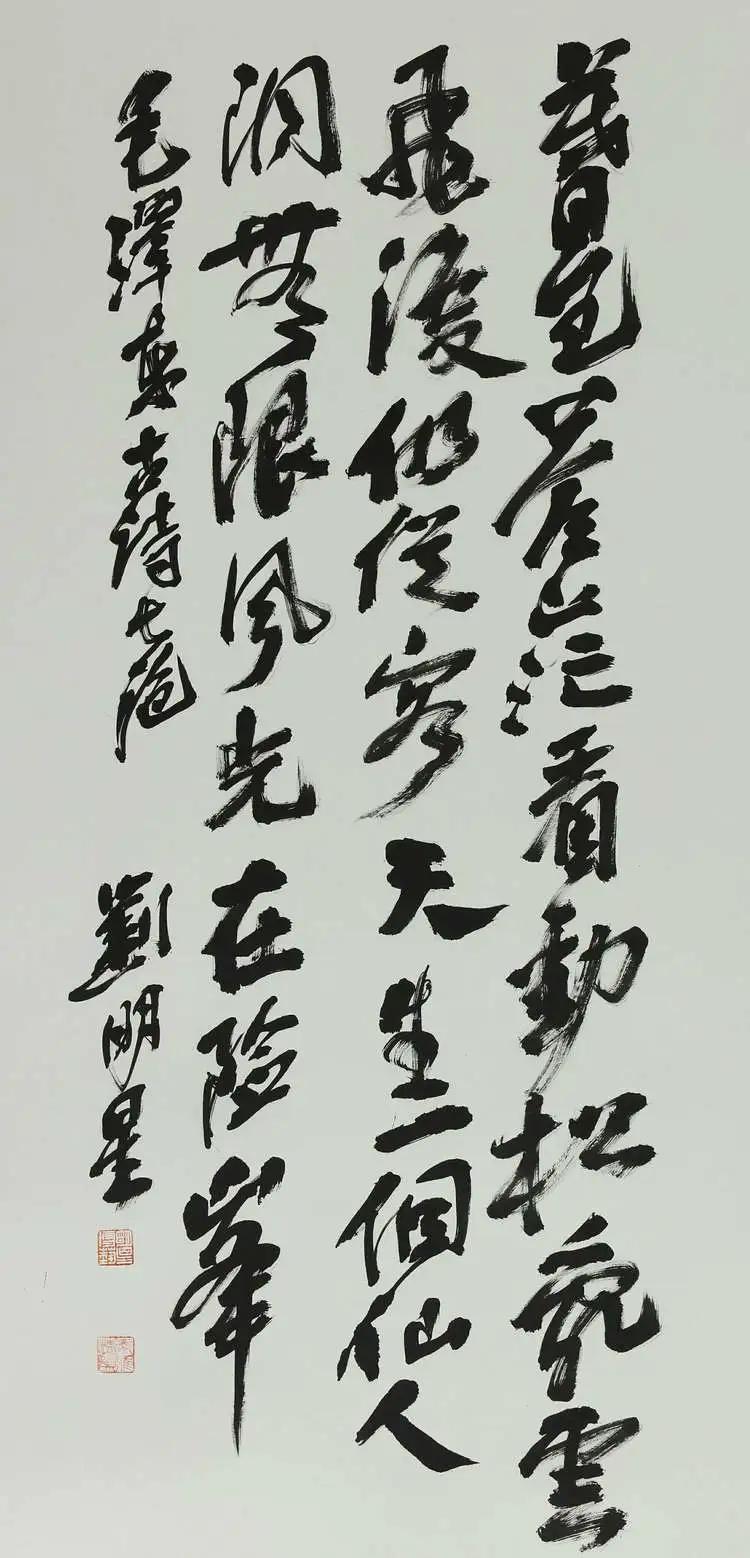 暮色蒼茫看勁松亂雲
飛渡仍從容天生一個仙人
洞無限風光在險峯
毛澤東古詩七絶 劉明星